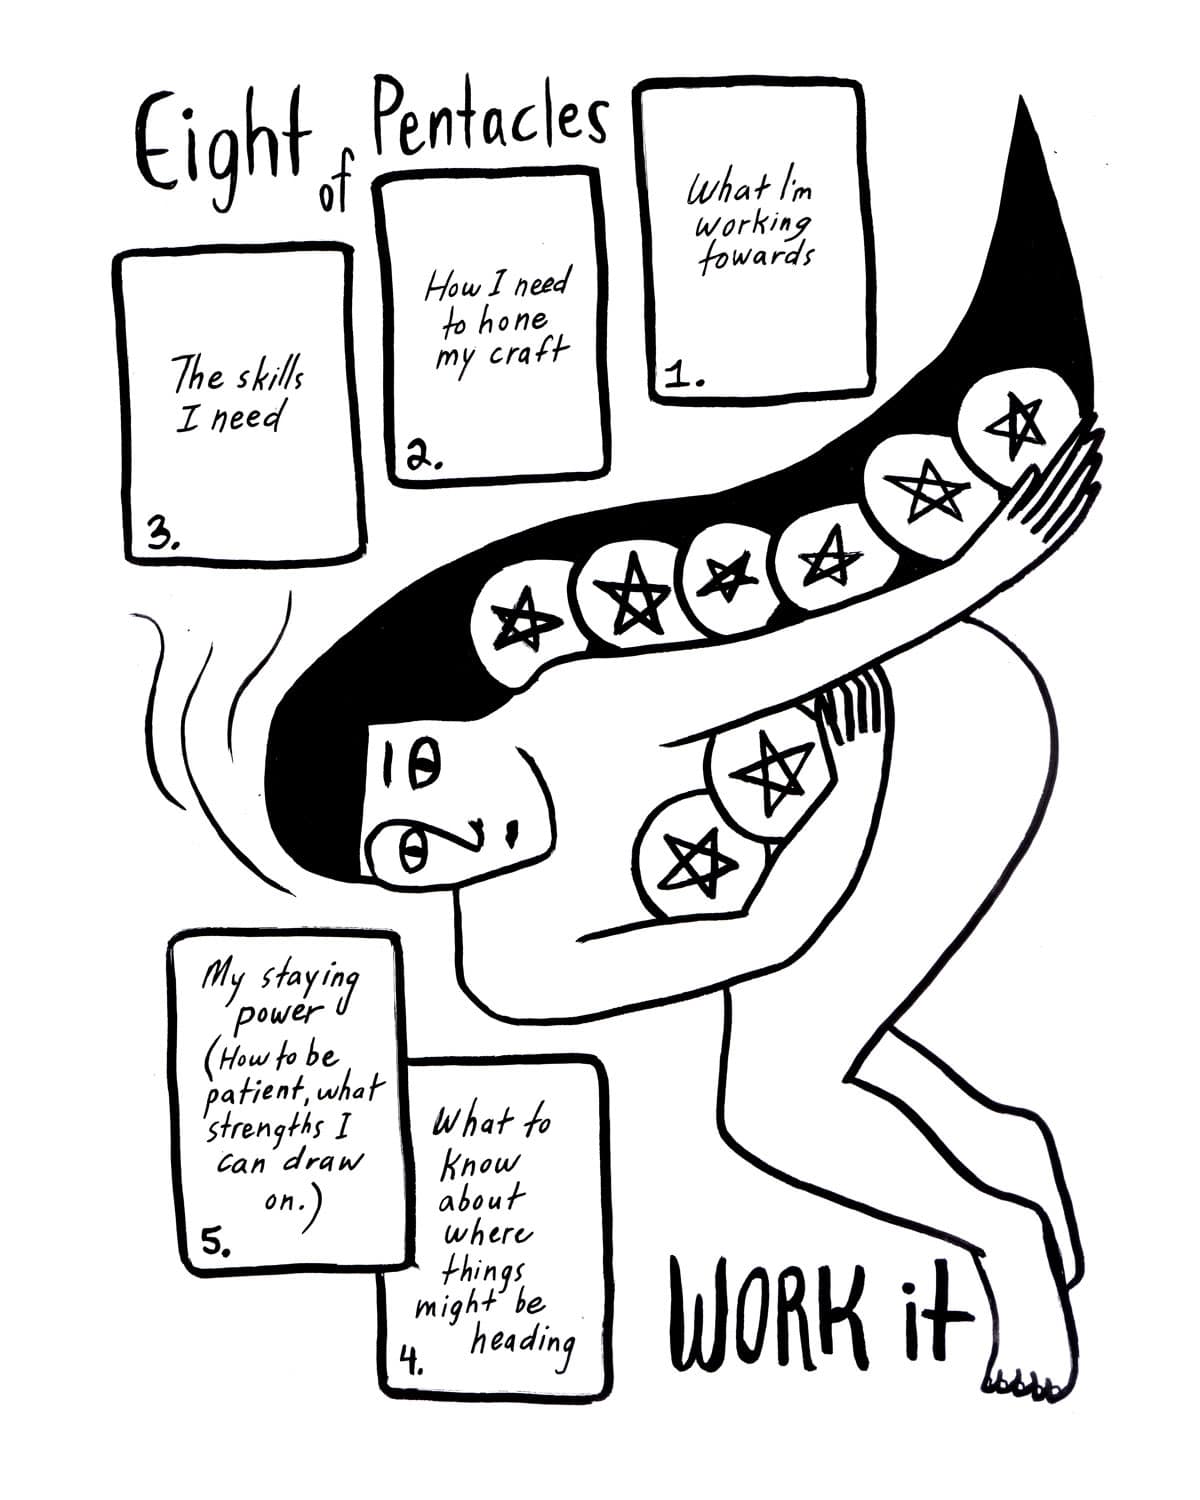 Eight of Pentacles
What I'm
working
towards
1.
How I need
to hone
my craft
2.
The skills
I need
3.
My staying
power
(How to be
patient, what
strengths I
can draw
on.)
5.
What to
know
about
where
things
might be
heading
4.
WORK it